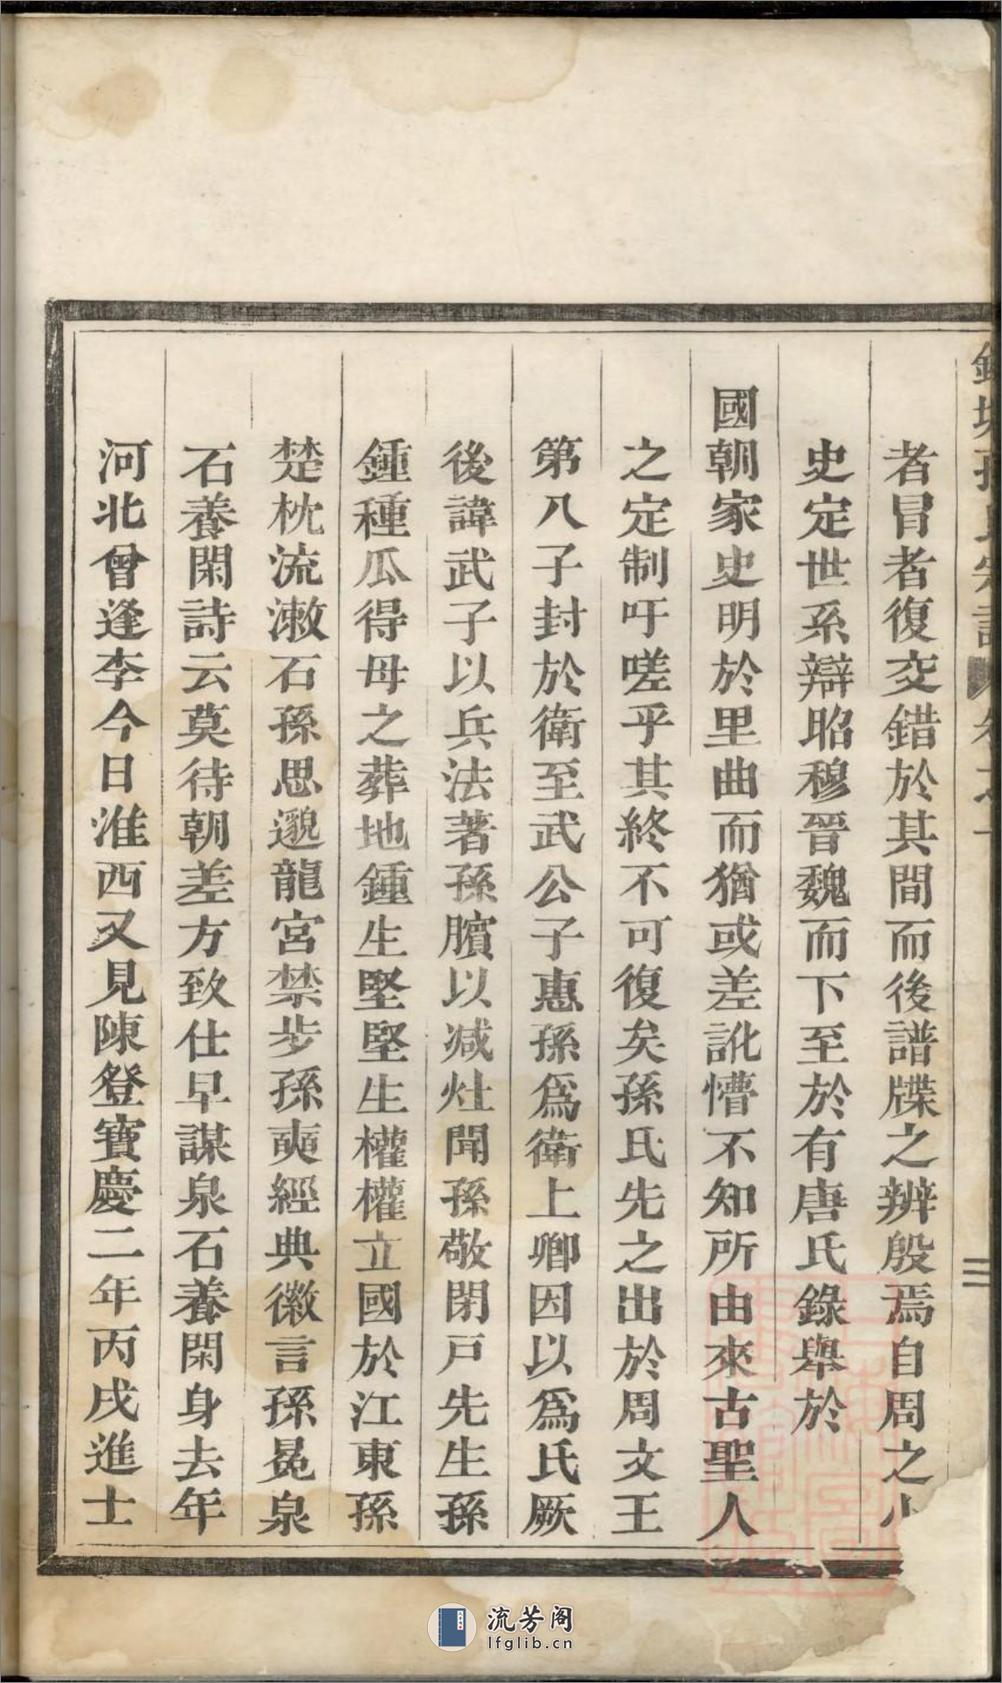 孫氏宗譜 卷之一 三
者冒者復交錯於其間而後譜牒之辨殷焉自周之小
史定世系辯昭穆晉魏而下至於有唐氏錄舉於
國朝家史明於里曲而猶或差訛懵不知所由來古聖人
之定制吁嗟乎其終不可復矣孫氏先之出於周文王
第八子封於衛至武公子惠孫爲衛上卿因以爲氏厥
後諱武子以兵法著孫臏以减灶聞孫敬閉戸先生孫
鍾種瓜得母之葬地鍾生堅堅生權權立國於江東孫
楚枕流漱石孫思邈龍宮禁步孫奭經典徽言孫冕泉
石養閑詩云莫待朝差方致仕早謀泉石養閑身去年
河北曾逢李今日淮西又見陳登寶慶二年丙戌進士
流芳阁
lfglib.cn